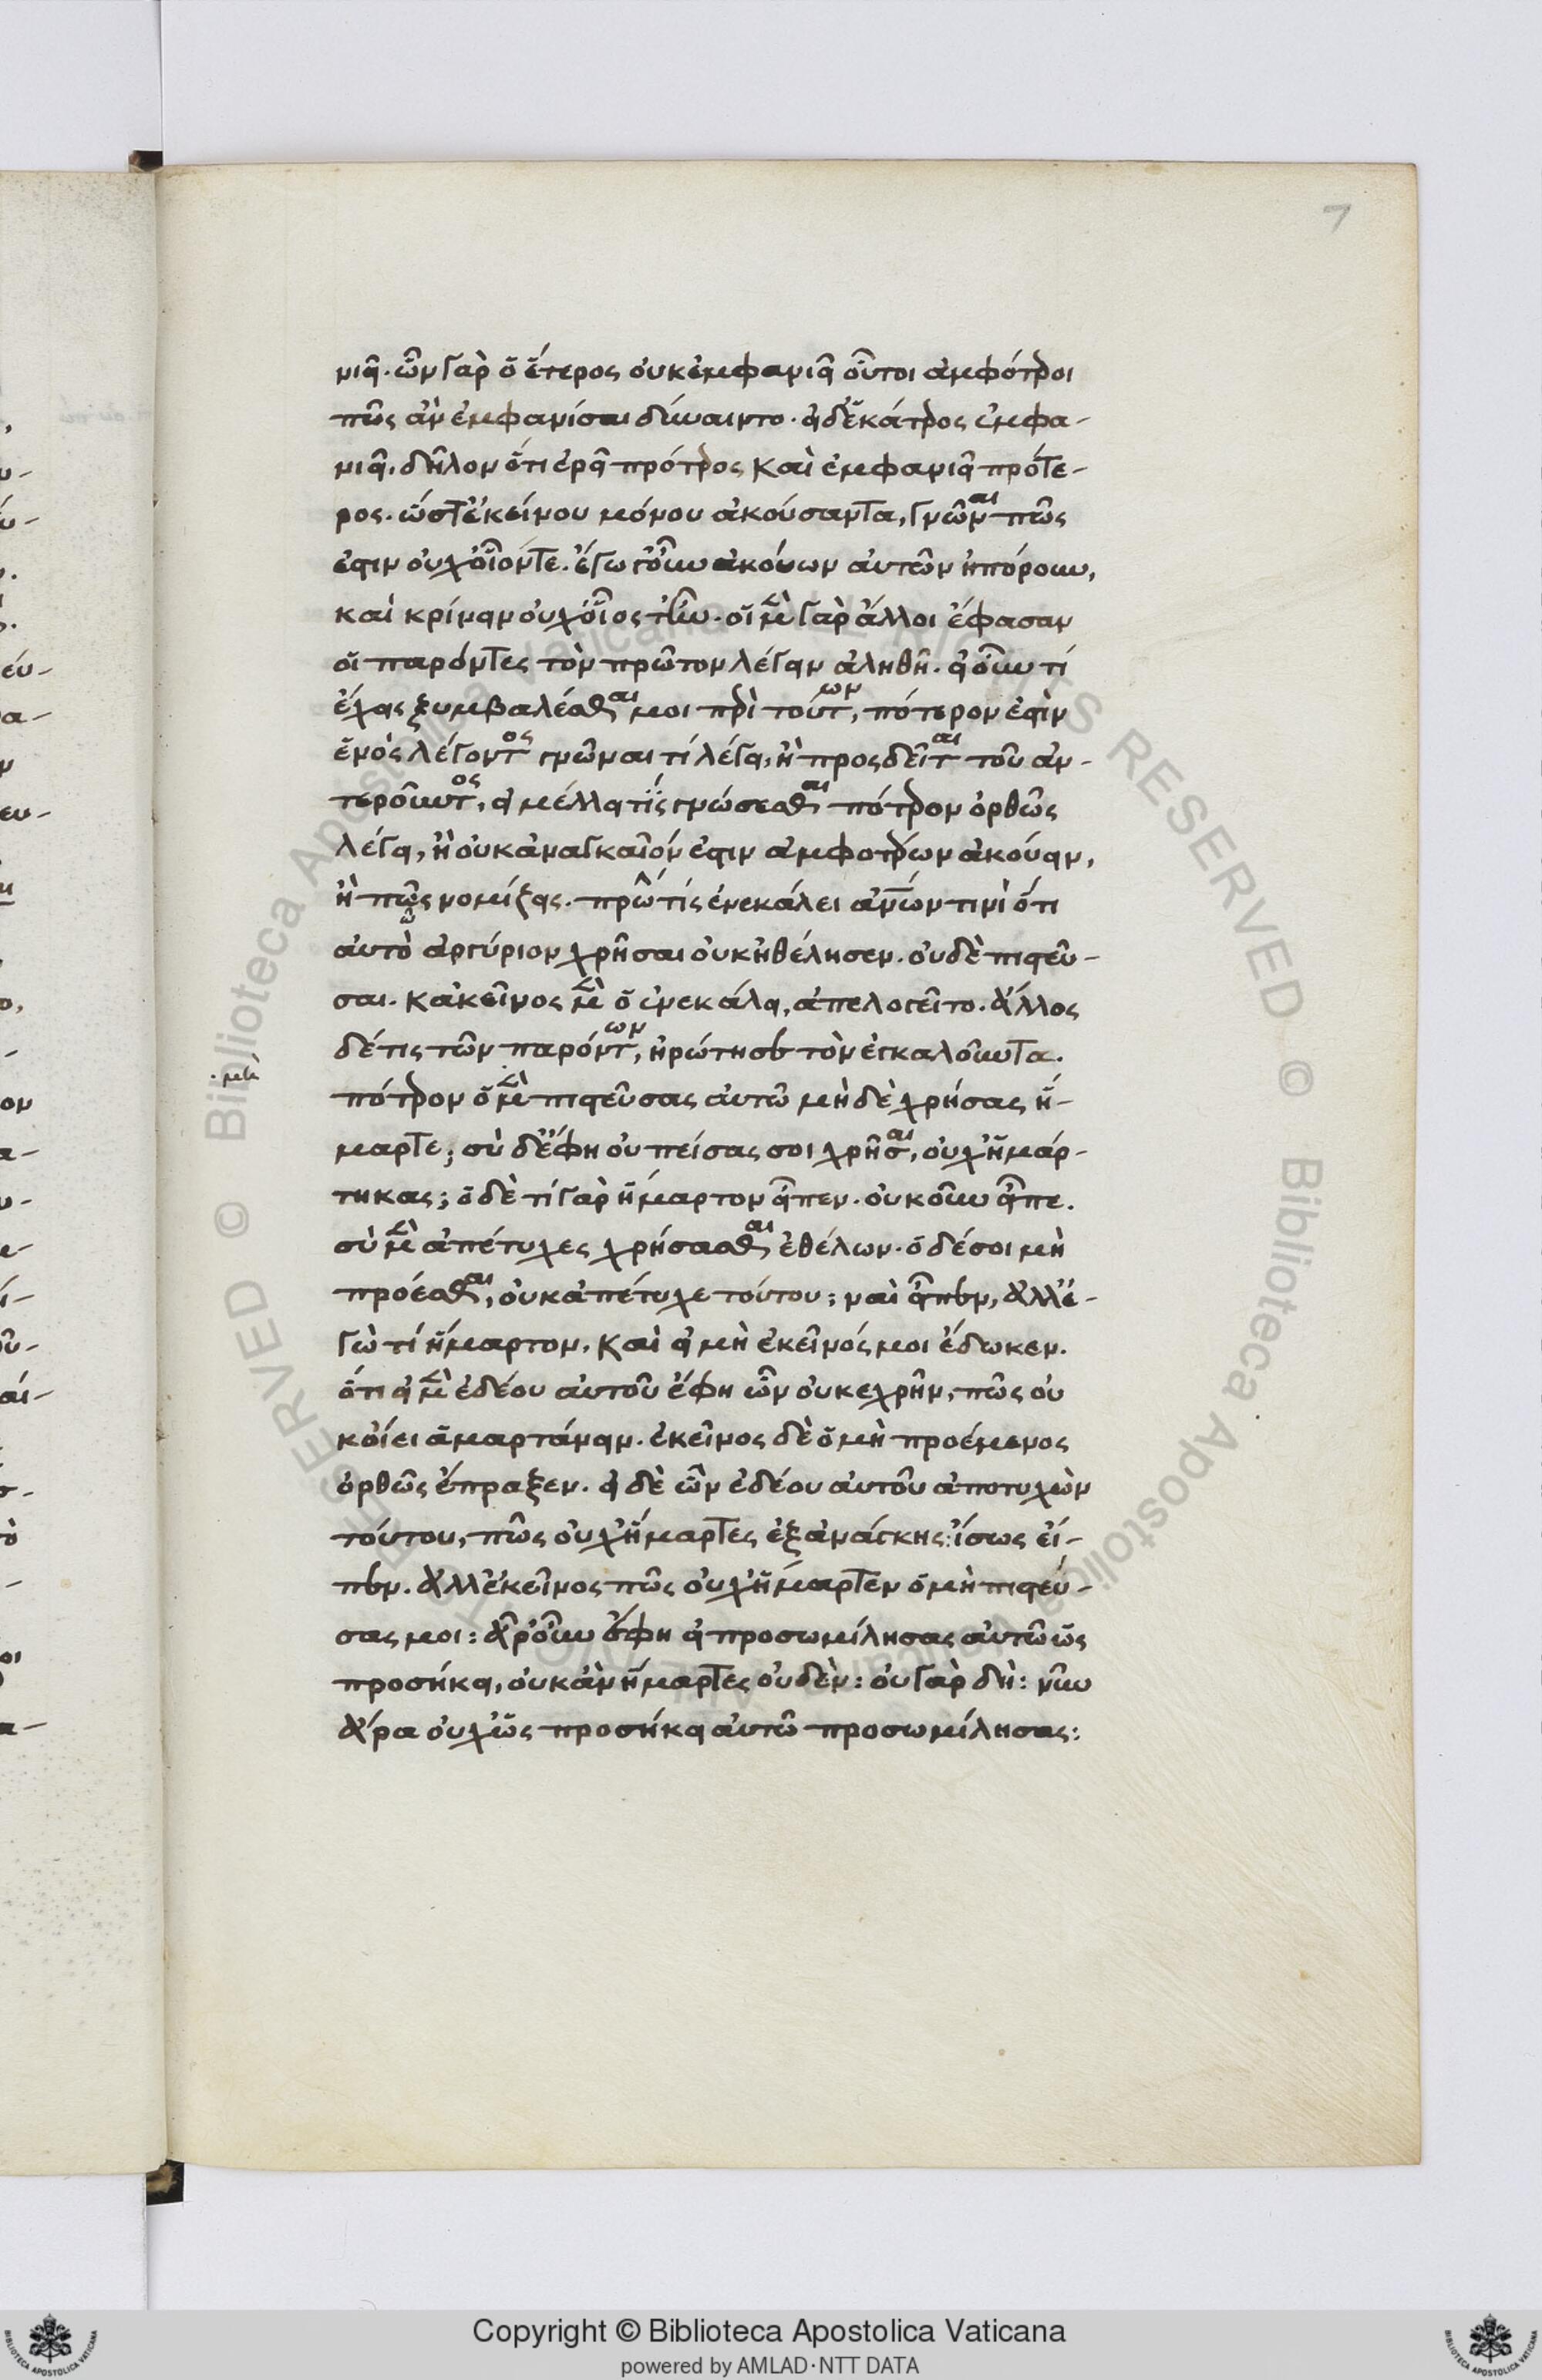 7
νιεῖ. ὧν γὰρ ὁ ἕτερος οὐκ ἐμφανιεῖ οὗτοι ἀμφότεροι
πῶς ἂν ἐμφανίσαι δύναιντο. εἰ δ' ἑκάτερος ἐμφα-
νιεῖ, δῆλον ὅτι ἐρεῖ πρότερος καὶ ἐμφανιεῖ πρότε-
ρος. ὥστ' ἐκείνου μόνου ἀκούσαντα, γνῶναι πῶς
ἐστιν οὐχ οἷόντε. ἐγὼ γ' οὖν ἀκούων αὐτῶν ἠπόρουν,
καὶ κρίνειν οὐχ οἷός τ' ἦν. οἱ μὲν γὰρ ἄλλοι ἔφασαν
οἱ παρόντες τὸν πρῶτον λέγειν ἀληθῆ. εἰ οὖν τί
ἔχεις ξυμβαλέσθαι μοι περὶ τούτων, πότερον ἐστὶν
ἑνὸς λέγοντος γνῶναι τί λέγει, ἢ προσδεῖται τοῦ ἀν-
τεροῦντος, εἰ μέλλει τίς γνώσεσθαι πότερον ὀρθῶς
λέγει, ἢ οὐκ ἀναγκαῖόν ἐστιν ἀμφοτέρων ἀκούειν,
ἢ πῶς νομίζεις. πρώ τίς ἐνεκάλει ἀνῶν τινὶ ὅτι
αὐτὸ ἀργύριον χρῆσαι οὐκ ἠθέλησεν. οὐδὲ πιστεῦ-
σαι. κἀκεῖνος μὲν ὃ ἐνεκάλει, ἀπελογεῖτο. ἄλλος
δέ τις τῶν παρόντων, ἠρώτησε τὸν ἐγκαλοῦντα.
πότερον ὁ μὲν πιστεῦσας αὐτῶ μὴ δὲ χρήσας ἥ-
μαρτε; σὺ δ' ἔφη οὐ πείσας σοι χρῆσαι, οὐχ ἡμάρ-
τηκας; ὁ δὲ τί γὰρ ἥμαρτον εἶπεν. οὐκοῦν εἶπε.
σὺ μὲν ἀπέτυχες χρήσασθαι ἐθέλων. ὁ δέ σοι μὴ
προέσθαι, οὐκ ἀπέτυχε τούτου; ναὶ εἶπεν, ἀλλ' ἐ-
γὼ τί ἥμαρτον, καὶ εἰ μὴ ἐκεῖνός μοι ἔδωκεν.
ὅτι εἰ μὲν ἐδέου αὐτοῦ ἔφη ὧν οὐκ ἐχρῆν, πῶς οὐ
κοἴει ἁμαρτάνειν. ἐκεῖνος δὲ ὁ μὴ προέμενος
ὀρθῶς ἔπραξεν. εἰ δὲ ὧν ἐδέου αὐτοῦ ἀποτυχὼν
τούτου, πῶς οὐχ ἥμαρτες ἐξανάγκης: ἴσως εἶ-
πεν. ἀλλ' ἐκεῖνος πῶς οὐχ ἥμαρτεν ὁ μὴ πιστεύ-
σας μοι: ἆρ' οὖν ἔφη εἰ προσωμίλησας αὐτῶ ὡς
προσήκει, οὐκ ἂν ἥμαρτες οὐδὲν: οὐ γὰρ δή: νῦν
ἄρα οὐχ ὡς προσήκει αὐτῶ προσωμίλησας:
Copyright © Biblioteca Apostolica Vaticana
powered by AMLAD·NTT DATA